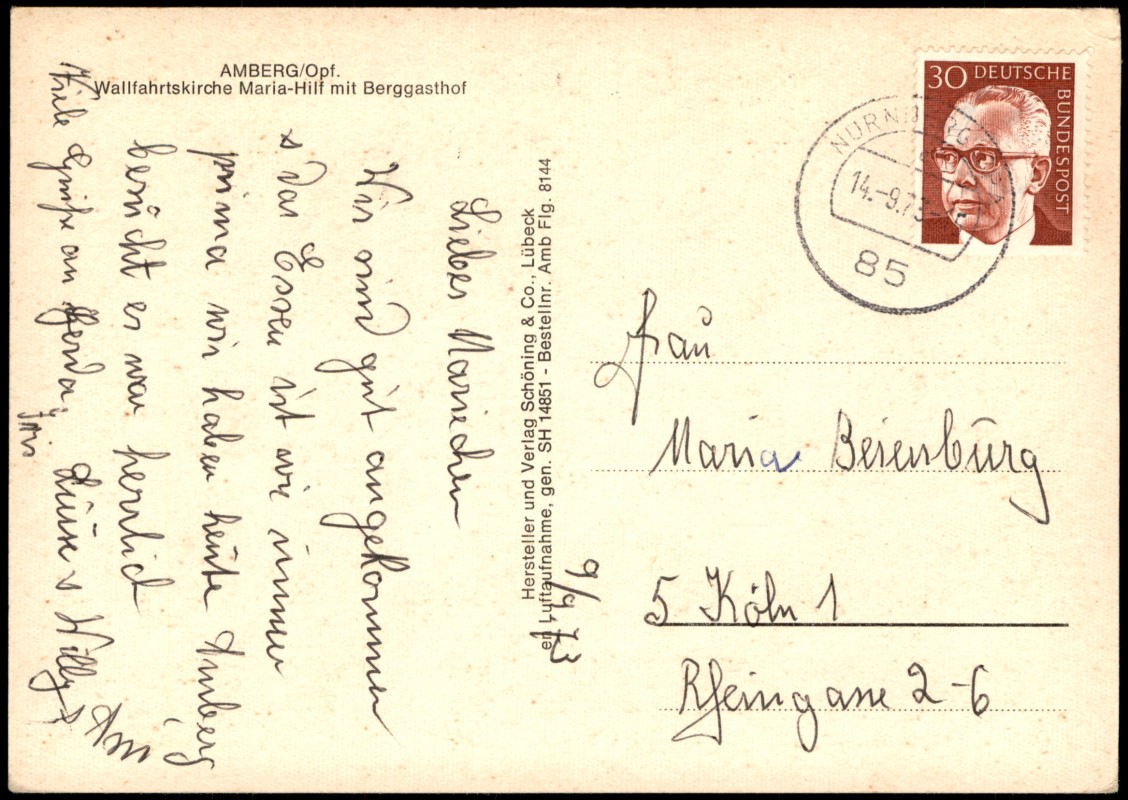 AMBERG/Opf.
Wallfahrtskirche Maria-Hilf mit Berggasthof
9/9 73
Liebes Mariechen
Wir sind gut angekommen
das Essen ist wie immer
prima wir haben heute Amberg
besücht es war herrlich
Viele Grüße an Gerda,
Luise & Willy &
Hersteller und Verlag Schöning & Co., Lübeck
en Luftaufnahme, gen. SH 14851 - Bestellnr. Amb Flg. 8144
30 DEUTSCHE BUNDESPOST
NÜRNBERG
14.-9.73
85
Frau
Maria Beienburg
5 Köln 1
Rheingasse 2-6